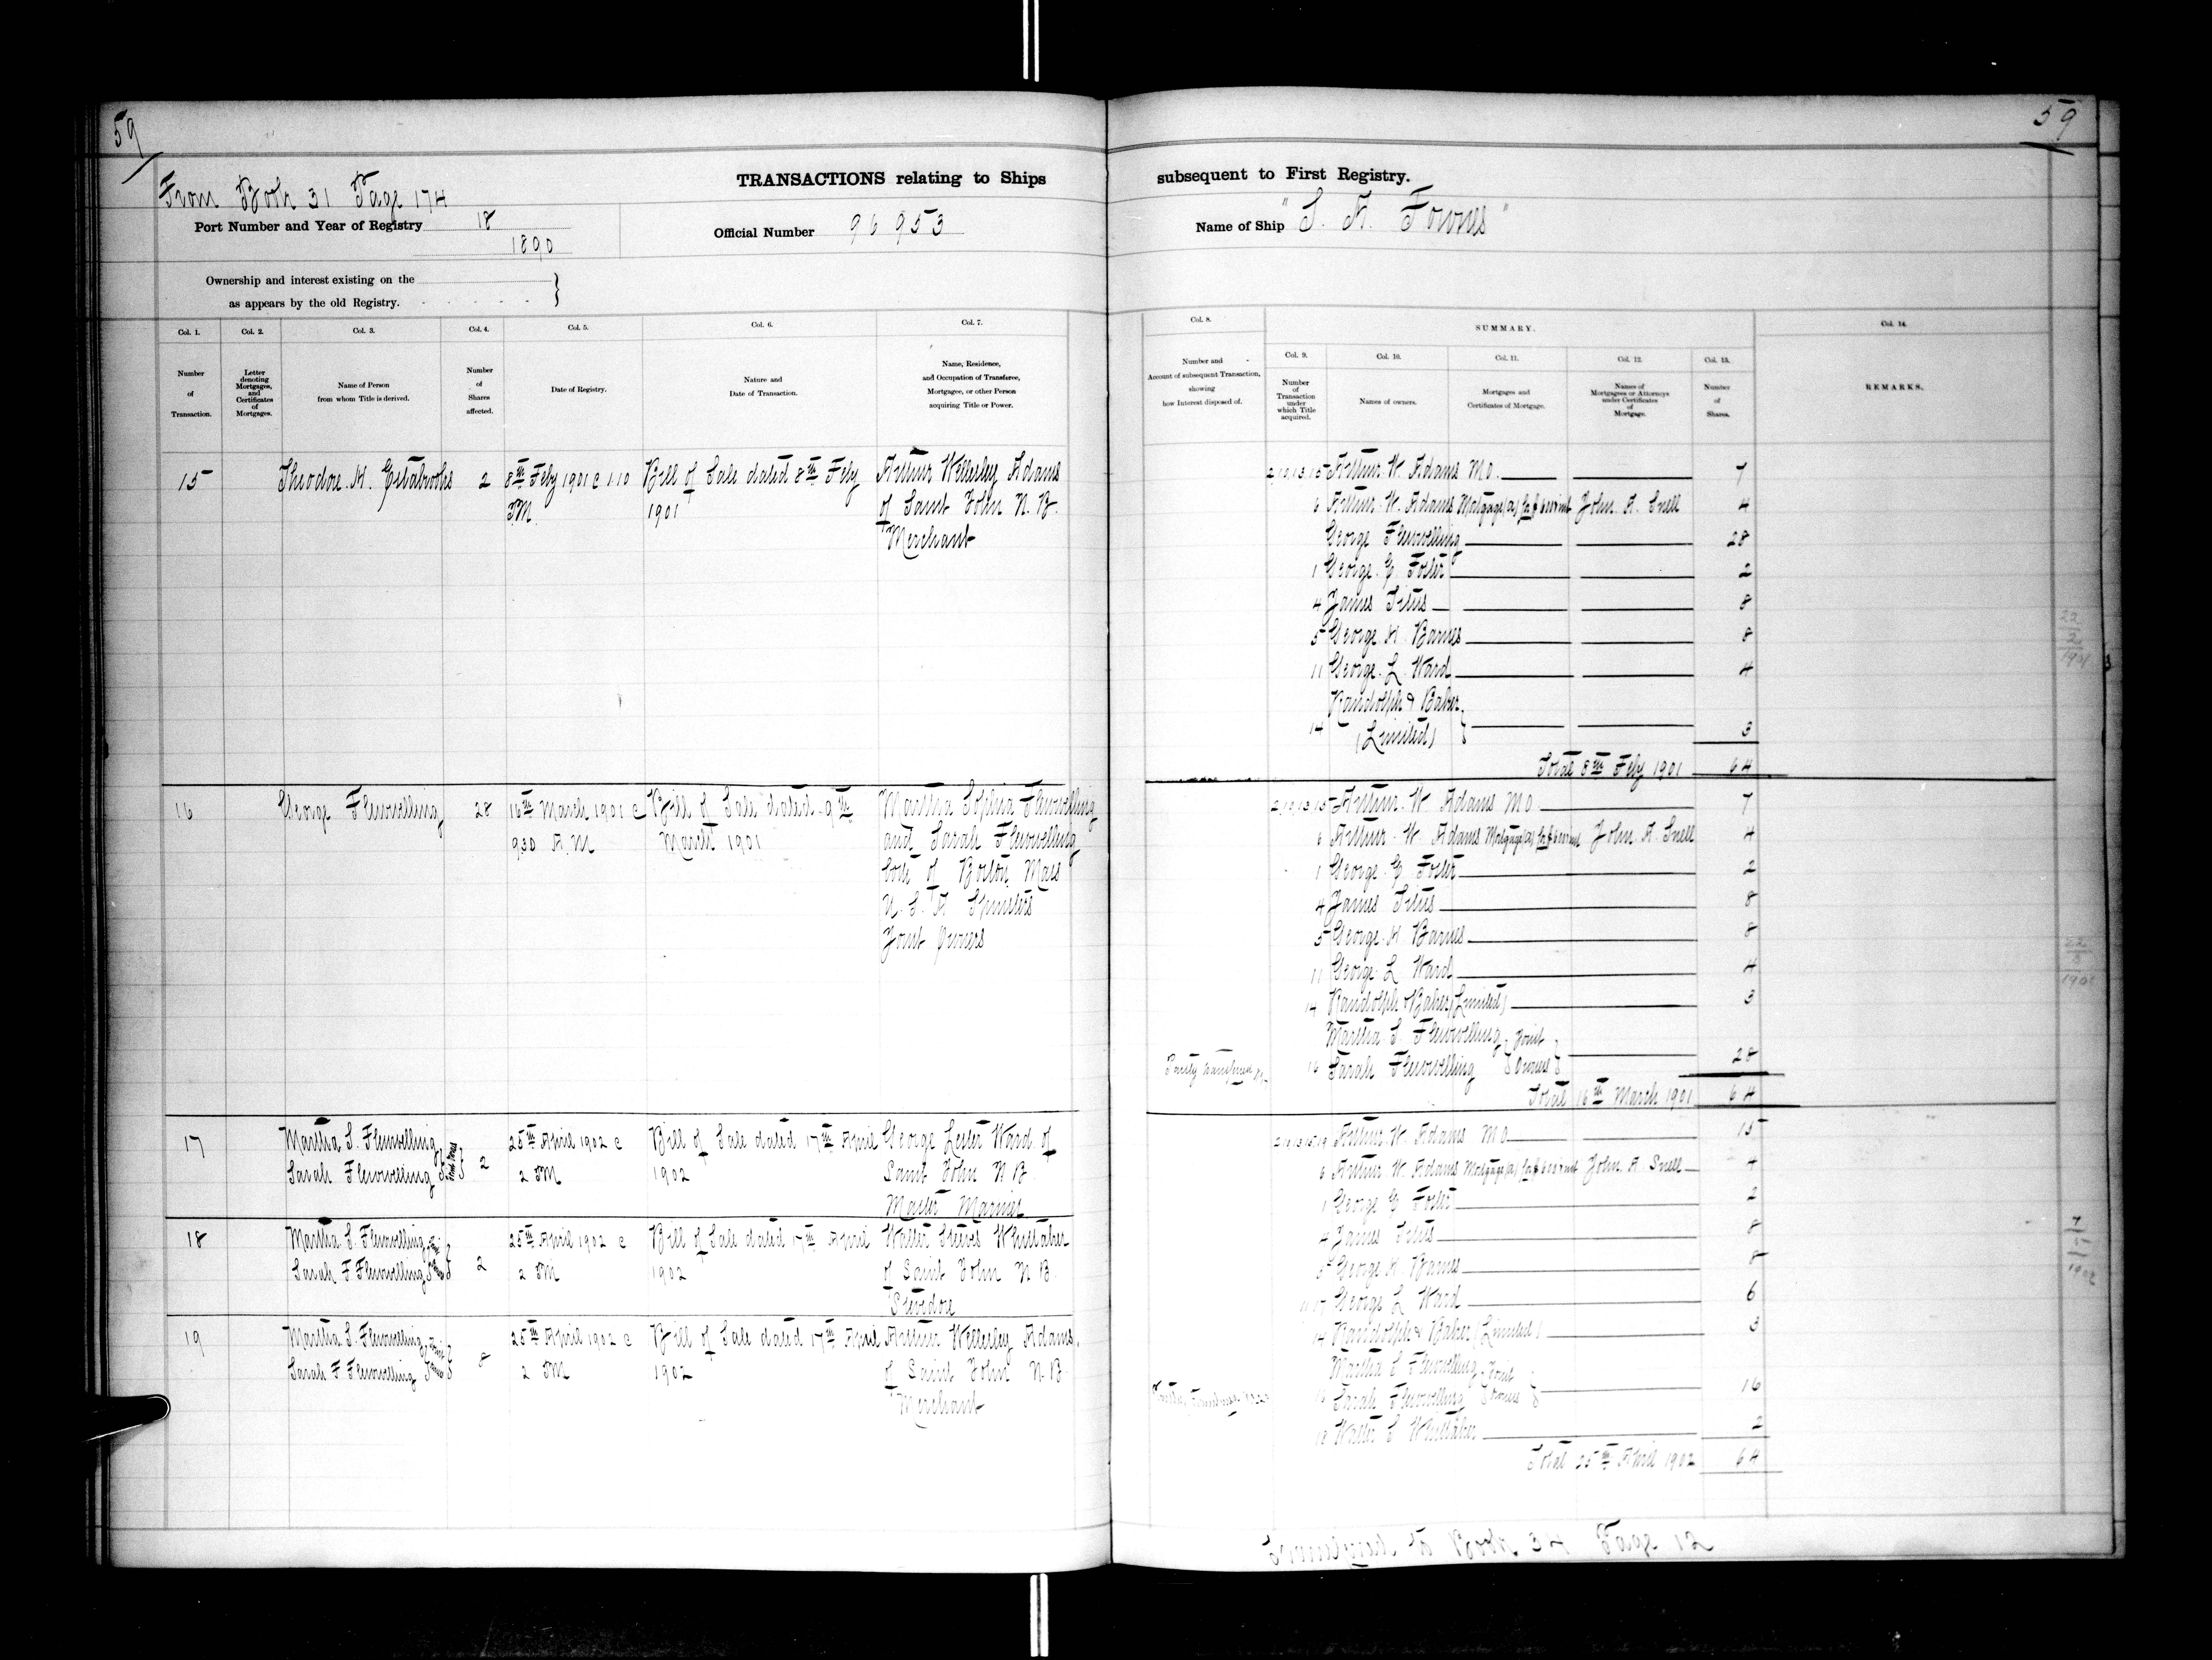 59
59
From Book 31 Page 174
TRANSACTIONS relating to Ships
subsequent to First Registry.
Port Number and Year of Registry 18
1890
Official Number 96 953
Name of Ship "S. A. Fownes"
Ownership and interest existing on the
as appears by the old Registry.
Col. 1.
Number
of
Transaction.
Col. 2.
Letter
denoting
Mortgages,
and
Certificates
of
Mortgages.
Col. 3.
Name of Person
from whom Title is derived.
Col. 4.
Number
of
Shares
affected.
Col. 5.
Date of Registry.
Col. 6.
Nature and
Date of Transaction.
Col. 7.
Name, Residence,
and Occupation of Transferee,
Mortgagee, or other Person
acquiring Title or Power.
Col. 8.
Number and
Account of subsequent Transaction,
showing
how Interest disposed of.
SUMMARY.
Col. 9.
Number
of
Transaction
under
which Title
acquired.
Col. 10.
Names of owners.
Col. 11.
Mortgages and
Certificates of Mortgage.
Col. 12.
Names of
Mortgagees or Attorneys
under Certificates
of
Mortgage.
Col. 13.
Number
of
Shares.
Col. 14.
REMARKS.
15
Theodore H. Estabrooks
2
8th Feby 1901 @ 1.10
PM
Bill of Sale dated 8th Feby
1901
Arthur Wellesley Adams
of Saint John N. B.
Merchant
Arthur W. Adams M.O. 7
6 Arthur W. Adams Mortgage (A) John A. Snell 4
George Flewwelling 28
1 George G Foster 2
4 James Titus 8
5 George H. Barnes 8
11 George L Ward 4
Randolph & Baker
14 (Limited) 3
Total 8th Feby 1901 64
22
2
1901
16
George Flewwelling
28
16th March 1901 @
9.30 A.M
Bill of Sale dated 9th
March 1901
Martha Sophia Flewwelling
and Sarah Flewwelling
both of Boston Mass
U. S. A Spinsters
Joint Owners
Arthur W Adams M.O. 7
6 Arthur W. Adams Mortgage (A) John A. Snell 4
1 George G Foster 2
4 James Titus 8
5 George H Barnes 8
11 George L Ward 4
14 Randolph & Baker (Limited) 3
Martha S. Flewwelling } Joint
16 Sarah Flewwelling } Owners 28
Total 16th March 1901 64
22
3
1901
17
Martha S. Flewwelling
Sarah Flewwelling
Joint Owners
2
25th April 1902 @
2 PM
Bill of Sale dated 17th April
1902
George Lester Ward of
Saint John N B
Master Mariner
18
Martha S. Flewwelling
Sarah F Flewwelling
Joint Owners
2
25th April 1902 @
2 PM
Bill of Sale dated 17th April
1902
Walter Steeves Whittaker
of Saint John N B.
Stevedore
19
Martha S. Flewwelling
Sarah F Flewwelling
Joint Owners
8
25th April 1902 @
2 PM
Bill of Sale dated 17th April
1902
Arthur Wellesley Adams,
of Saint John N.B.
Merchant
Arthur W. Adams M O 15
6 Arthur W Adams Mortgage (A) John A. Snell 4
1 George G Foster 2
4 James Titus 8
5 George H. Barnes 8
11 17 George L Ward 6
14 Randolph & Baker (Limited) 3
Martha S Flewwelling } Joint
16 Sarah Flewwelling } Owners 16
18 Walter S Whittaker 2
Total 25th April 1902 64
1902
Transferred to Book 34 Page 12